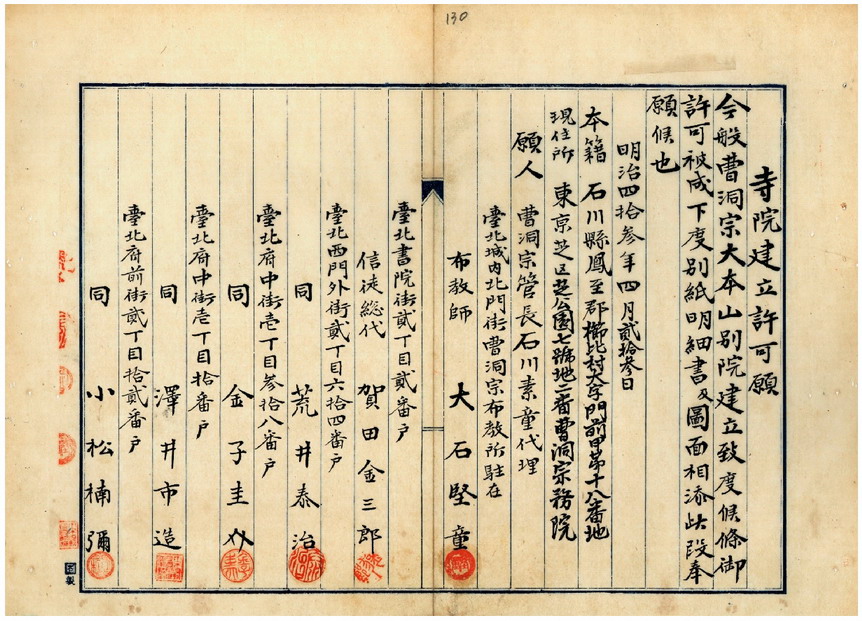 130
寺院建立許可願
今般曹洞宗大本山別院建立致度候條御
許可被成下度別紙明細書及圖面相添此段奉
願候也
明治四拾参年四月貳拾参日
本籍 石川縣鳳至郡櫛比村字門前甲第十八番地
現住所 東京芝区芝公園七號地二番曹洞宗務院
願人 曹洞宗管長石川素童代理
臺北城内北門街曹洞宗布教所駐在
布教師 大石堅童
臺北書院街貳丁目貳番戶
信徒総代 賀田金三郎
臺北西門外街貳丁目六拾四番戶
同 荒井泰治
臺北府中街壱丁目参拾八番戶
同 金子圭介
臺北府中街壱丁目拾番戶
同 澤井市造
臺北府前街貳丁目拾貳番戶
同 小松楠彌